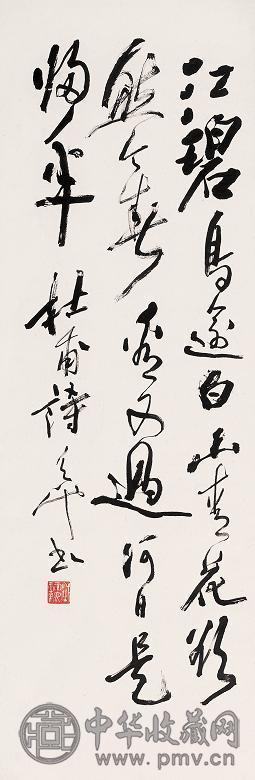 江碧鸟逾白山青花欲
然今春看又過何日是
归年 杜甫詩
书
中华收藏网
www.pmv.cn